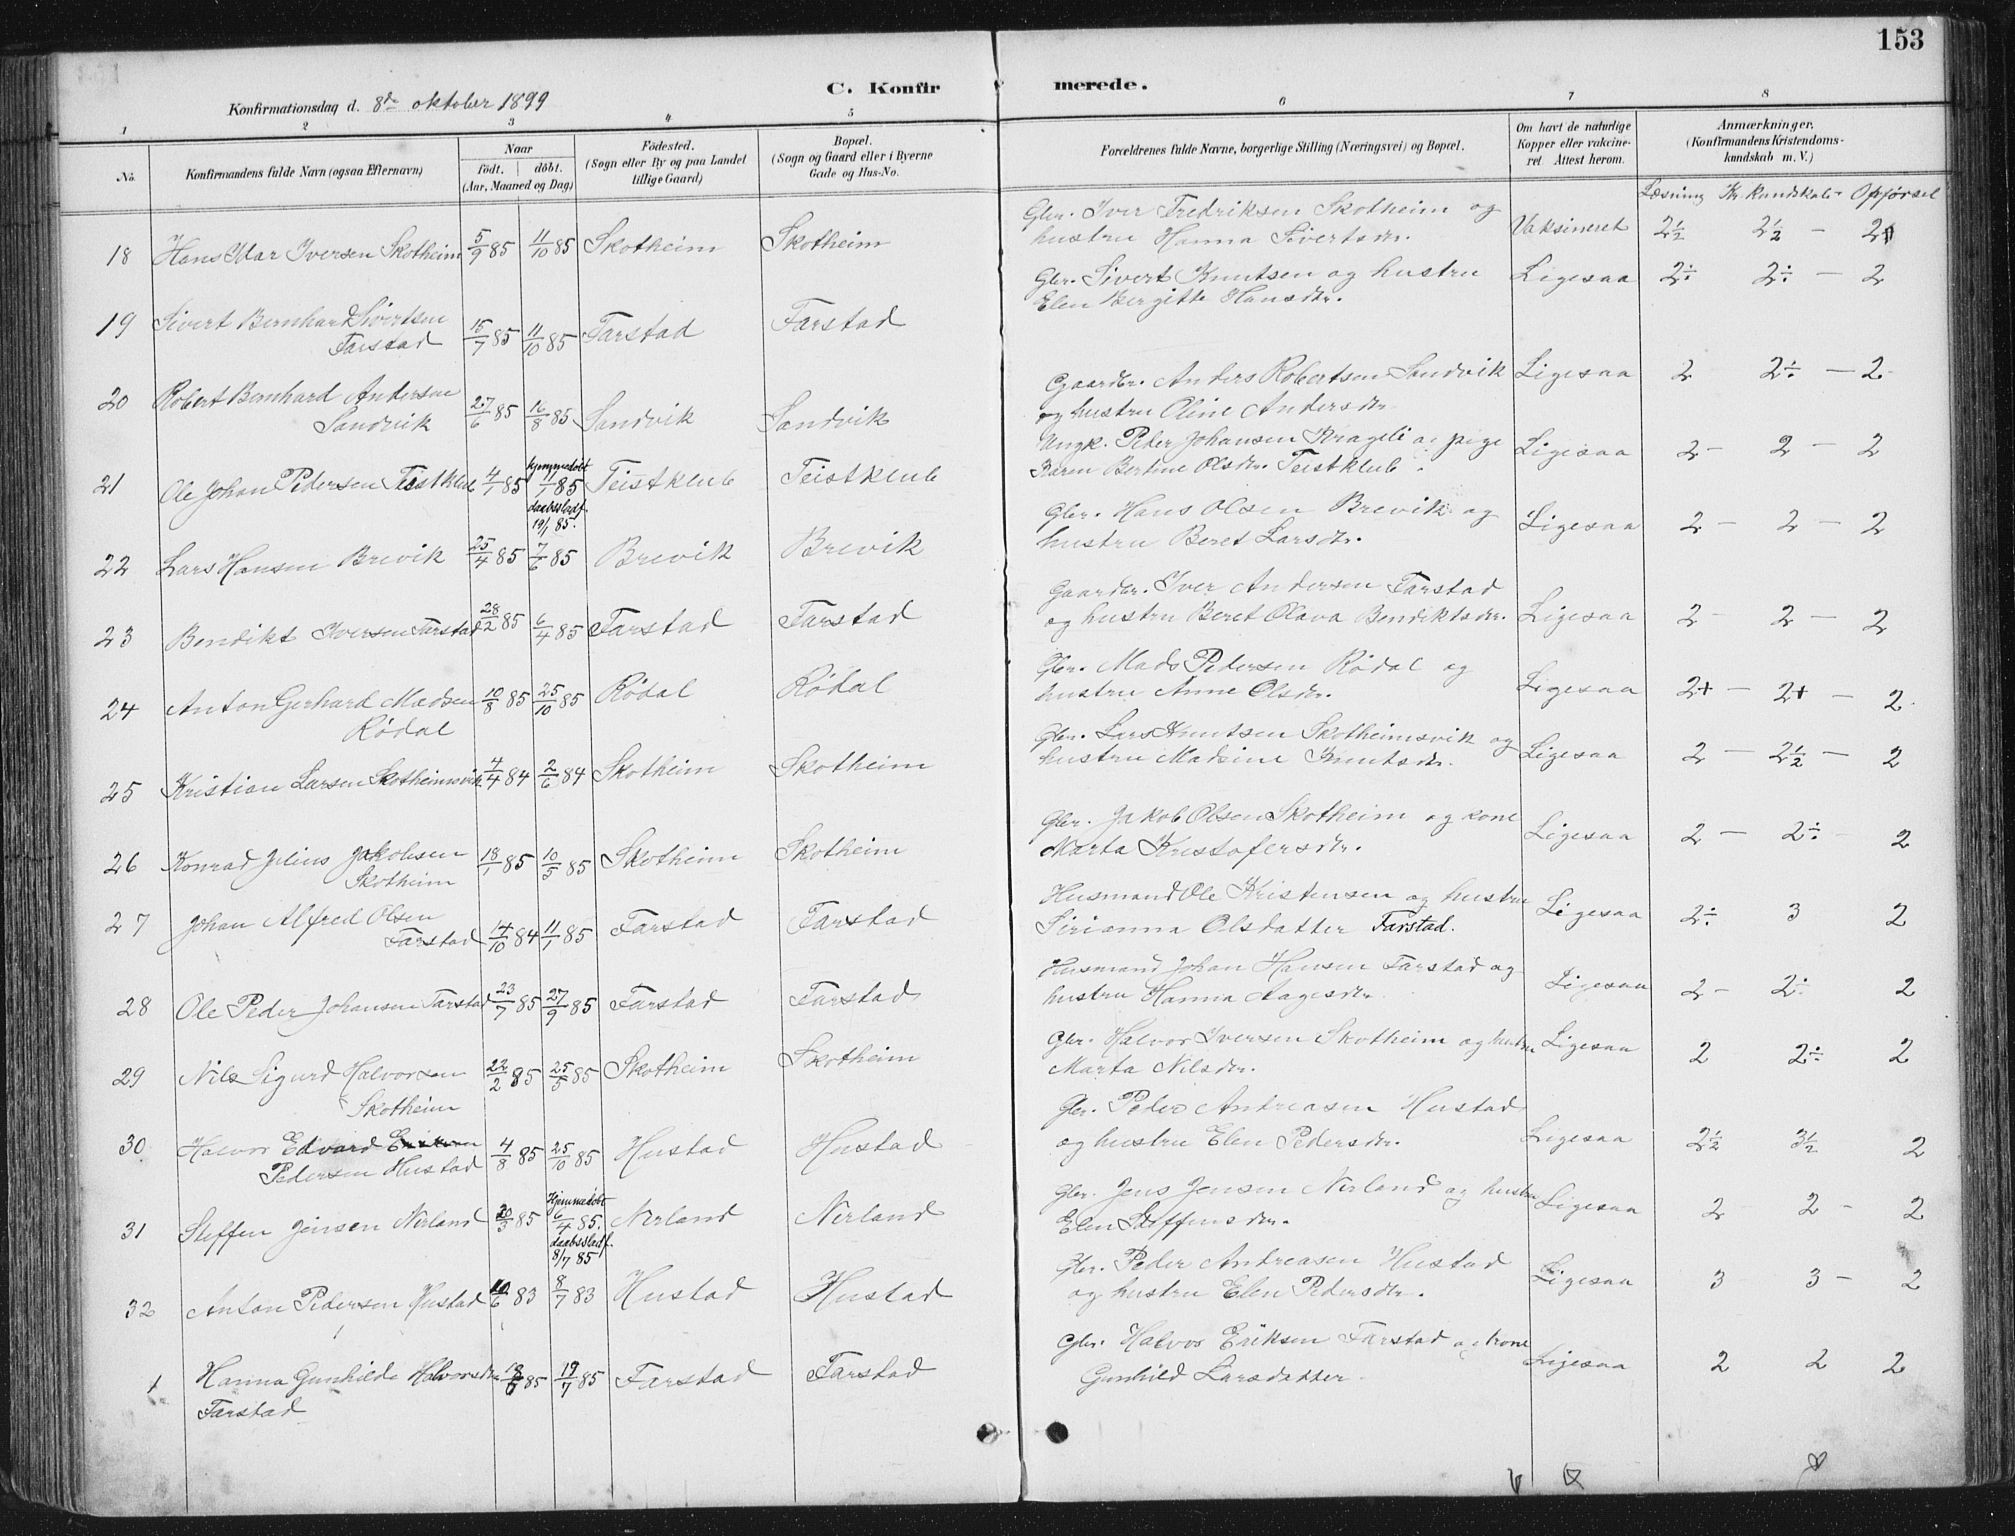 153
C. Konfirmerede.
Konfirmationsdag d. 8de oktober 1899
1 2 3 4 5 6 7 8
No. Konfirmandens fulde Navn (ogsaa Efternavn) Naar født. døbt. (Aar, Maaned og Dag) Fødested. (Sogn eller By og paa Landet tillige Gaard) Bopæl. (Sogn og Gaard eller i Byerne Gade og Hus-No. Forældrenes fulde Navne, borgerlige Stilling (Næringsvei) og Bopæl. Om havt de naturlige Kopper eller vakcineret Attest herom. Anmærkninger. (Konfirmandens Kristendomskundskab m. V.)
Læsning Kr kundskab Opførsel
18 Hans Mar Iversen Skotheim 5/9 85 11/10 85 Skotheim Skotheim Gbr. Iver Fredriksen Skotheim og hustru Hanna Sivertsdr. Vaksineret 2½ 2½ – 2
19 Sivert Bernhard Sivertsen Farstad 15/7 85 11/10 85 Farstad Farstad Gbr. Sivert Knutsen og hustru Elen Bergitte Hansdtr. Ligesaa 2÷ 2÷ – 2
20 Robert Bernhard Andersen Sandvik 27/6 85 16/8 85 Sandvik Sandvik Gaardbr. Anders Robertsen Sandvik og hustru Oline Andersdr Ligesaa 2 2÷ – 2
21 Ole Johan Pedersen Teistkleb 4/1 85 hjemmedøbt 11/1 85 daabsstadf. 19/1 85. Teistkleb Teistkleb Ungk. Peder Johansen Krageli og pige Karen Bertine Olsdr. Teistkleb. Ligesaa 2 – 2 – 2
22 Lars Hansen Brevik 25/4 85 7/6 85 Brevik Brevik Gbr. Hans Olsen Brevik og hustru Beret Larsdr. Ligesaa 2 – 2 – 2
23 Bendikt Iversen Farstad 28/2 85 6/4 85 Farstad Farstad Gaardbr. Iver Andersen Farstad og hustru Beret Olava Bendiktsdr. Ligesaa 2 – 2 – 2
24 Anton Gerhard Madsen Rødal 10/8 85 25/10 85 Rødal Rødal Gbr. Mads Pedersen Rødal og hustru Anne Olsdr. Ligesaa 2+ – 2+ – 2
25 Kristian Larsen Skotheimsvik 4/4 84 2/6 84 Skotheim Skotheim Gbr. Lars Knutsen Skotheimsvik og hustru Madsine Knutsdr. Ligesaa 2 – 2½ – 2
26 Konrad Julius Jakobsen Skotheim 18/1 85 10/5 85 Skotheim Skotheim Gbr. Jakob Olsen Skotheim og kone Marta Kristofersdr. Ligesaa 2 – 2÷ – 2
27 Johan Alfred Olsen Farstad 14/10 84 11/1 85 Farstad Farstad Husmand Ole Kristensen og hustru Sirianna Olsdatter Farstad. Ligesaa 2÷ 3 2
28 Ole Peder Johansen Farstad 23/7 85 27/9 85 Farstad Farstad Husmand Johan Hansen Farstad og hustru Hanna Aagesdr. Ligesaa 2 – 2÷ 2
29 Nils Sigurd Halvorsen Skotheim 22/2 85 25/5 85 Skotheim Skotheim Gbr. Halvor Iversen Skotheim og hustru Marta Nilsdr. Ligesaa 2 2÷ 2
30 Halvor Edvard Pedersen Hustad 4/8 85 25/10 85 Hustad Hustad Gbr. Peder Andreasen Hustad og hustru Elen Pedersdr. Ligesaa 2½ 3½ 2
31 Steffen Jensen Nerland 20/3 85 Hjemmedøbt 6/4 85. daabsstadf. 8/7 85 Nerland Nerland Gbr. Jens Jensen Nerland og hustru Elen Steffensdr. Ligesaa 2 – 2 – 2
32 Anton Pedersen Hustad 10/6 83 8/7 83 Hustad Hustad Gbr. Peder Andreasen Hustad og hustru Elen Pedersdtr. Ligesaa 3 3 – 2
1 Hanna Gunhilde Halvorsdtr Farstad 85 19/7 85 Farstad Farstad Gbr. Halvor Eriksen Farstad og kone Gunhild Larsdatter. Ligesaa 2 2 2